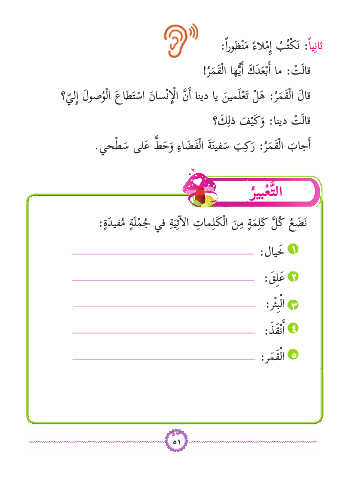 ثانِياً: نَكْتُبُ إِمْلاءً مَنْظوراً:
قالَتْ: ما أَبْعَدَكَ أَيُّها الْقَمَرُ!
قالَ الْقَمَرُ: هَلْ تَعْلَمينَ يا دينا أَنَّ الْإِنْسانَ اسْتَطاعَ الْوُصولَ إِليّ؟
قالَتْ دينا: وَكَيْفَ ذلِكَ؟
أَجابَ الْقَمَرُ: رَكِبَ سَفينَةَ الْفَضاءِ وَحَطَّ عَلى سَطْحي.
التَّعْبيرُ
نَضَعُ كُلَّ كَلِمَةٍ مِنَ الْكَلِماتِ الآتِيَةِ في جُمْلَةٍ مُفيدَةٍ:
١ خَيال:
٢ عَلِقَ:
٣ الْبِئْر:
٤ أَنْقَذَ:
٥ الْقَمَر:
٥١